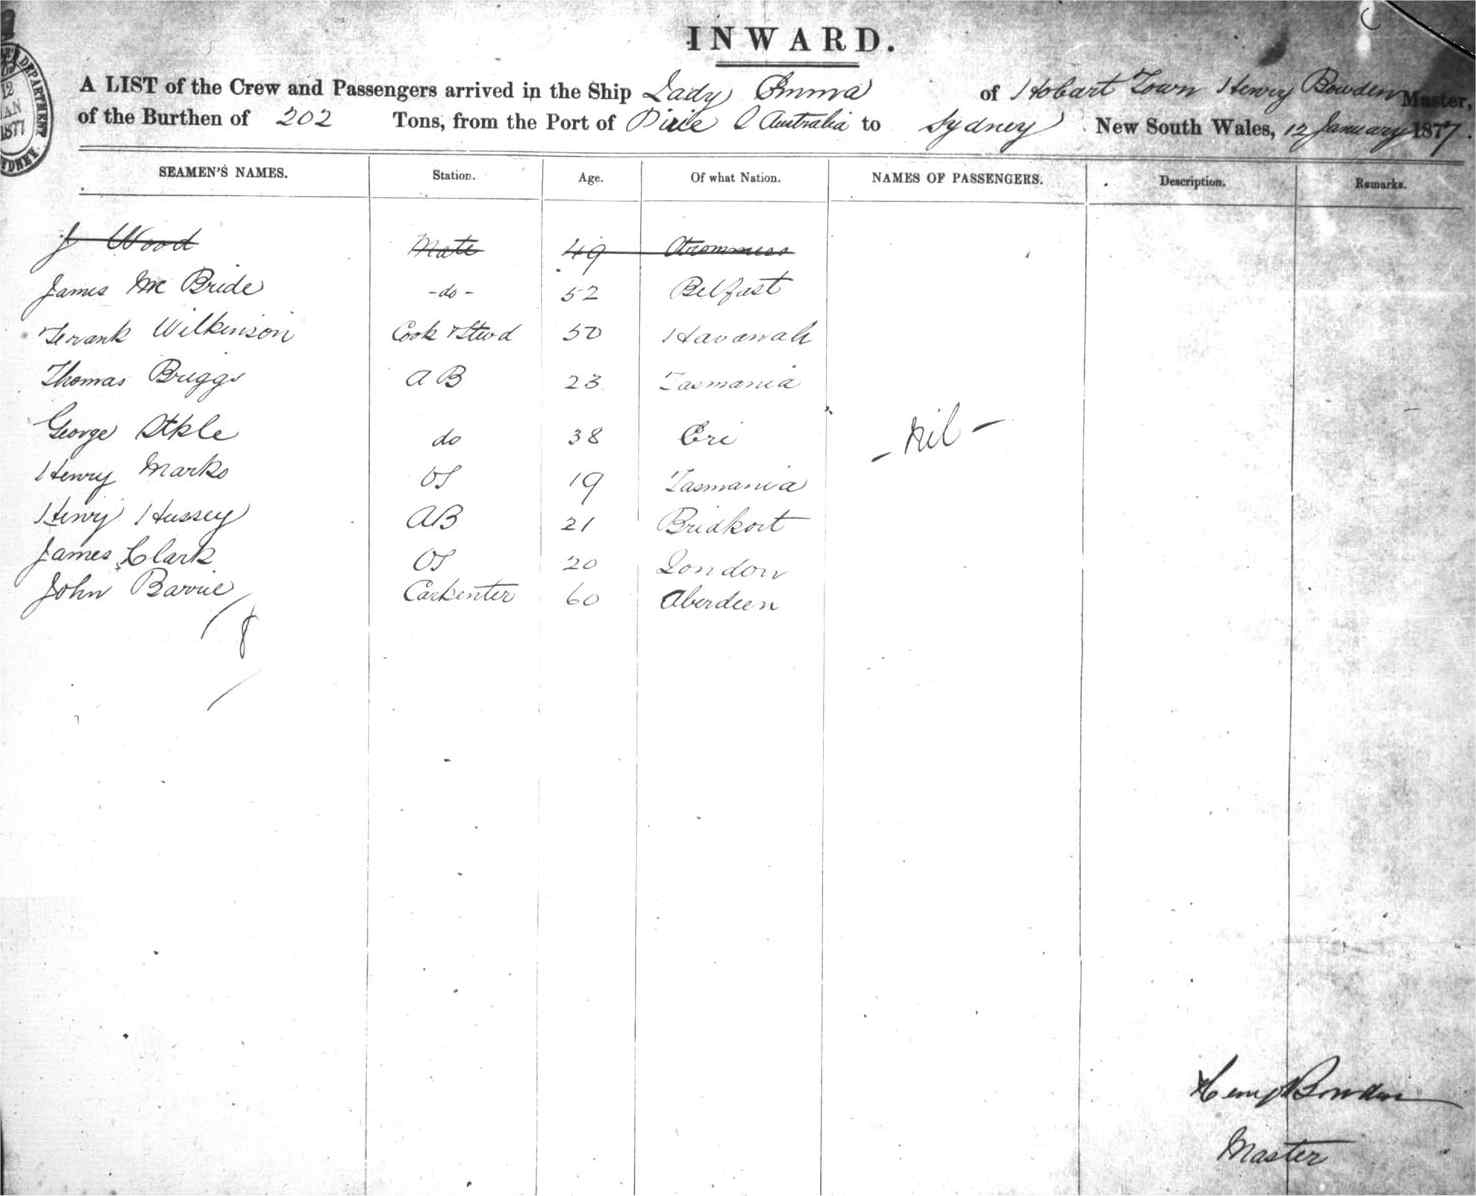 INWARD.
DEPARTMENT 12 JAN 1877 SYDNEY
A LIST of the Crew and Passengers arrived in the Ship Lady Emma of Hobart Town Henry Bowden Master,
of the Burthen of 202 Tons, from the Port of Australia to Sydney New South Wales, 12 January 1877.
SEAMEN'S NAMES. Station. Age. Of what Nation. NAMES OF PASSENGERS. Description. Remarks.
J Wood Mate 49 Stromness
James Mc Bride -do- 52 Belfast
Frank Wilkinson Cook & Stwd 50 Havanah
Thomas Briggs AB 23 Tasmania
George do 38
- Nil -
Henry Marks OS 19 Tasmania
Henry Hussey AB 21 Bridport
James Clark OS 20 London
John Barrie Carpenter 60 Aberdeen
8
Henry Bowden
Master